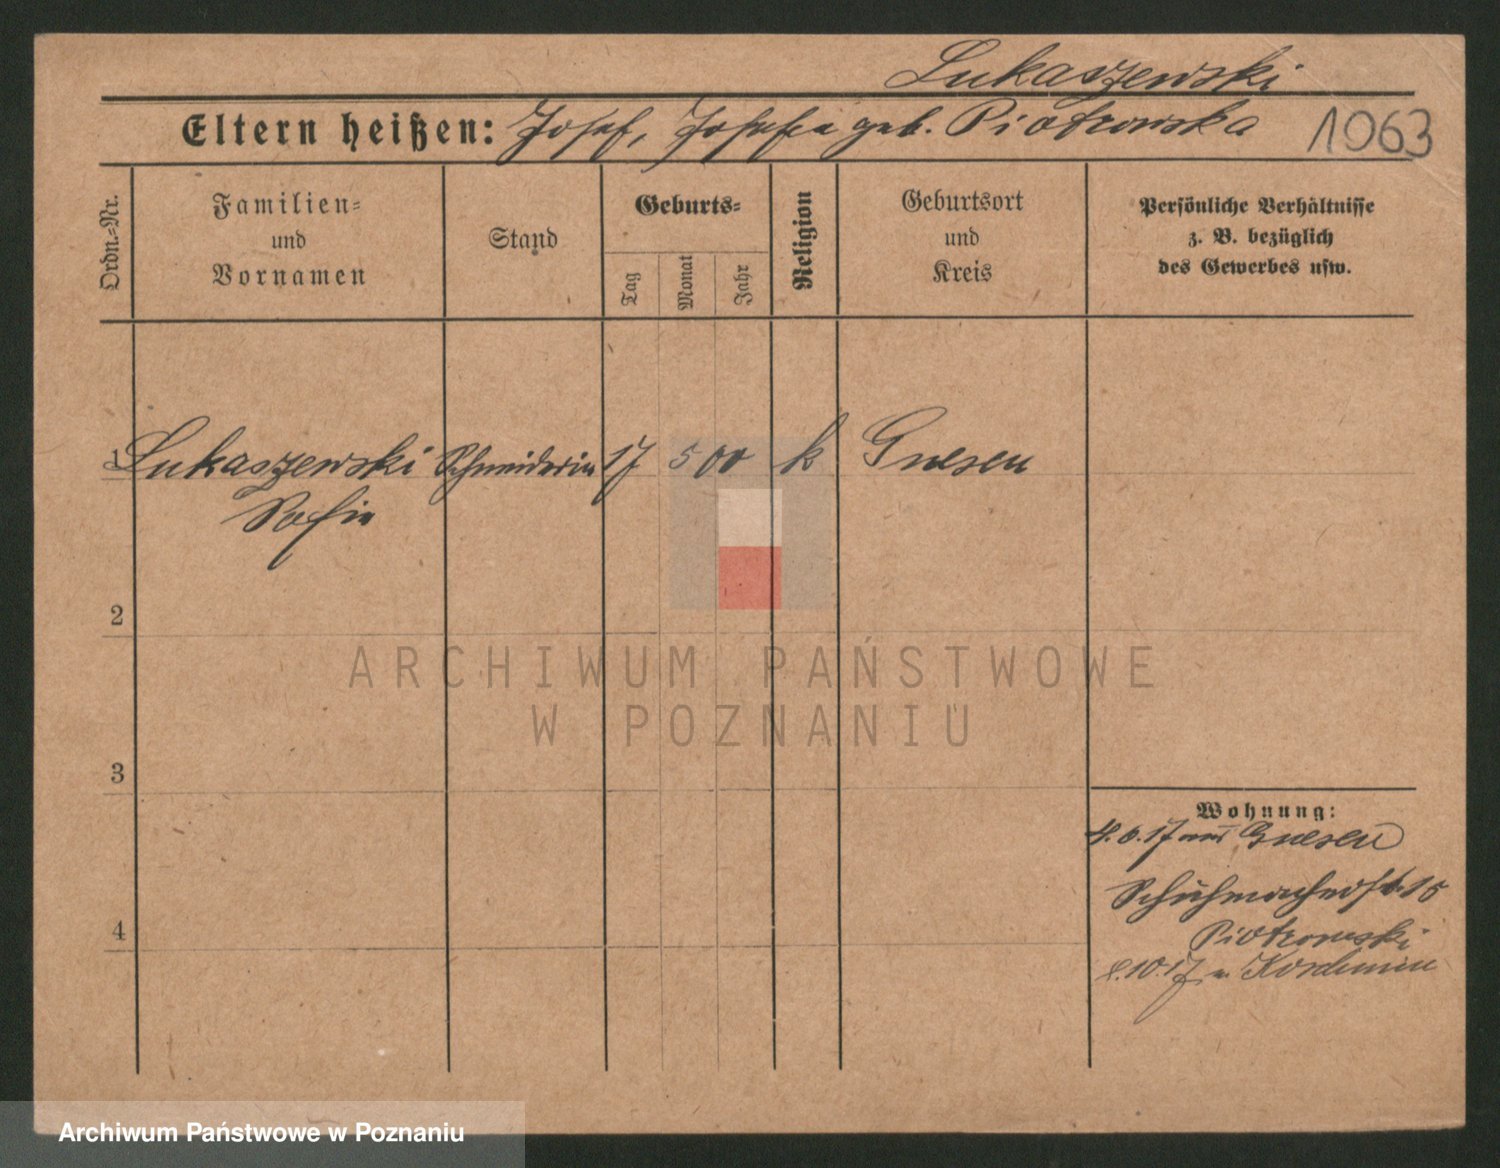 Lukaszewski
Eltern heißen: Josef, Josefa geb. Piotrowska
1063
Ordn.=Nr.
Familien=
und
Vornamen
Stand
Geburts=
Tag
Monat
Jahr
Religion
Geburtsort
und
Kreis
Persönliche Verhältnisse
z. B. bezüglich
des Gewerbes usw.
1 Lukaszewski Schneiderin 17 5 00 k Gnesen
Sofie
2
3
4
Wohnung:
4.6.17 aus Gnesen
Schuhmacherstr. 15
Piotrowski
10.17 n.
ARCHIWUM PAŃSTWOWE
W POZNANIU
Archiwum Państwowe w Poznaniu